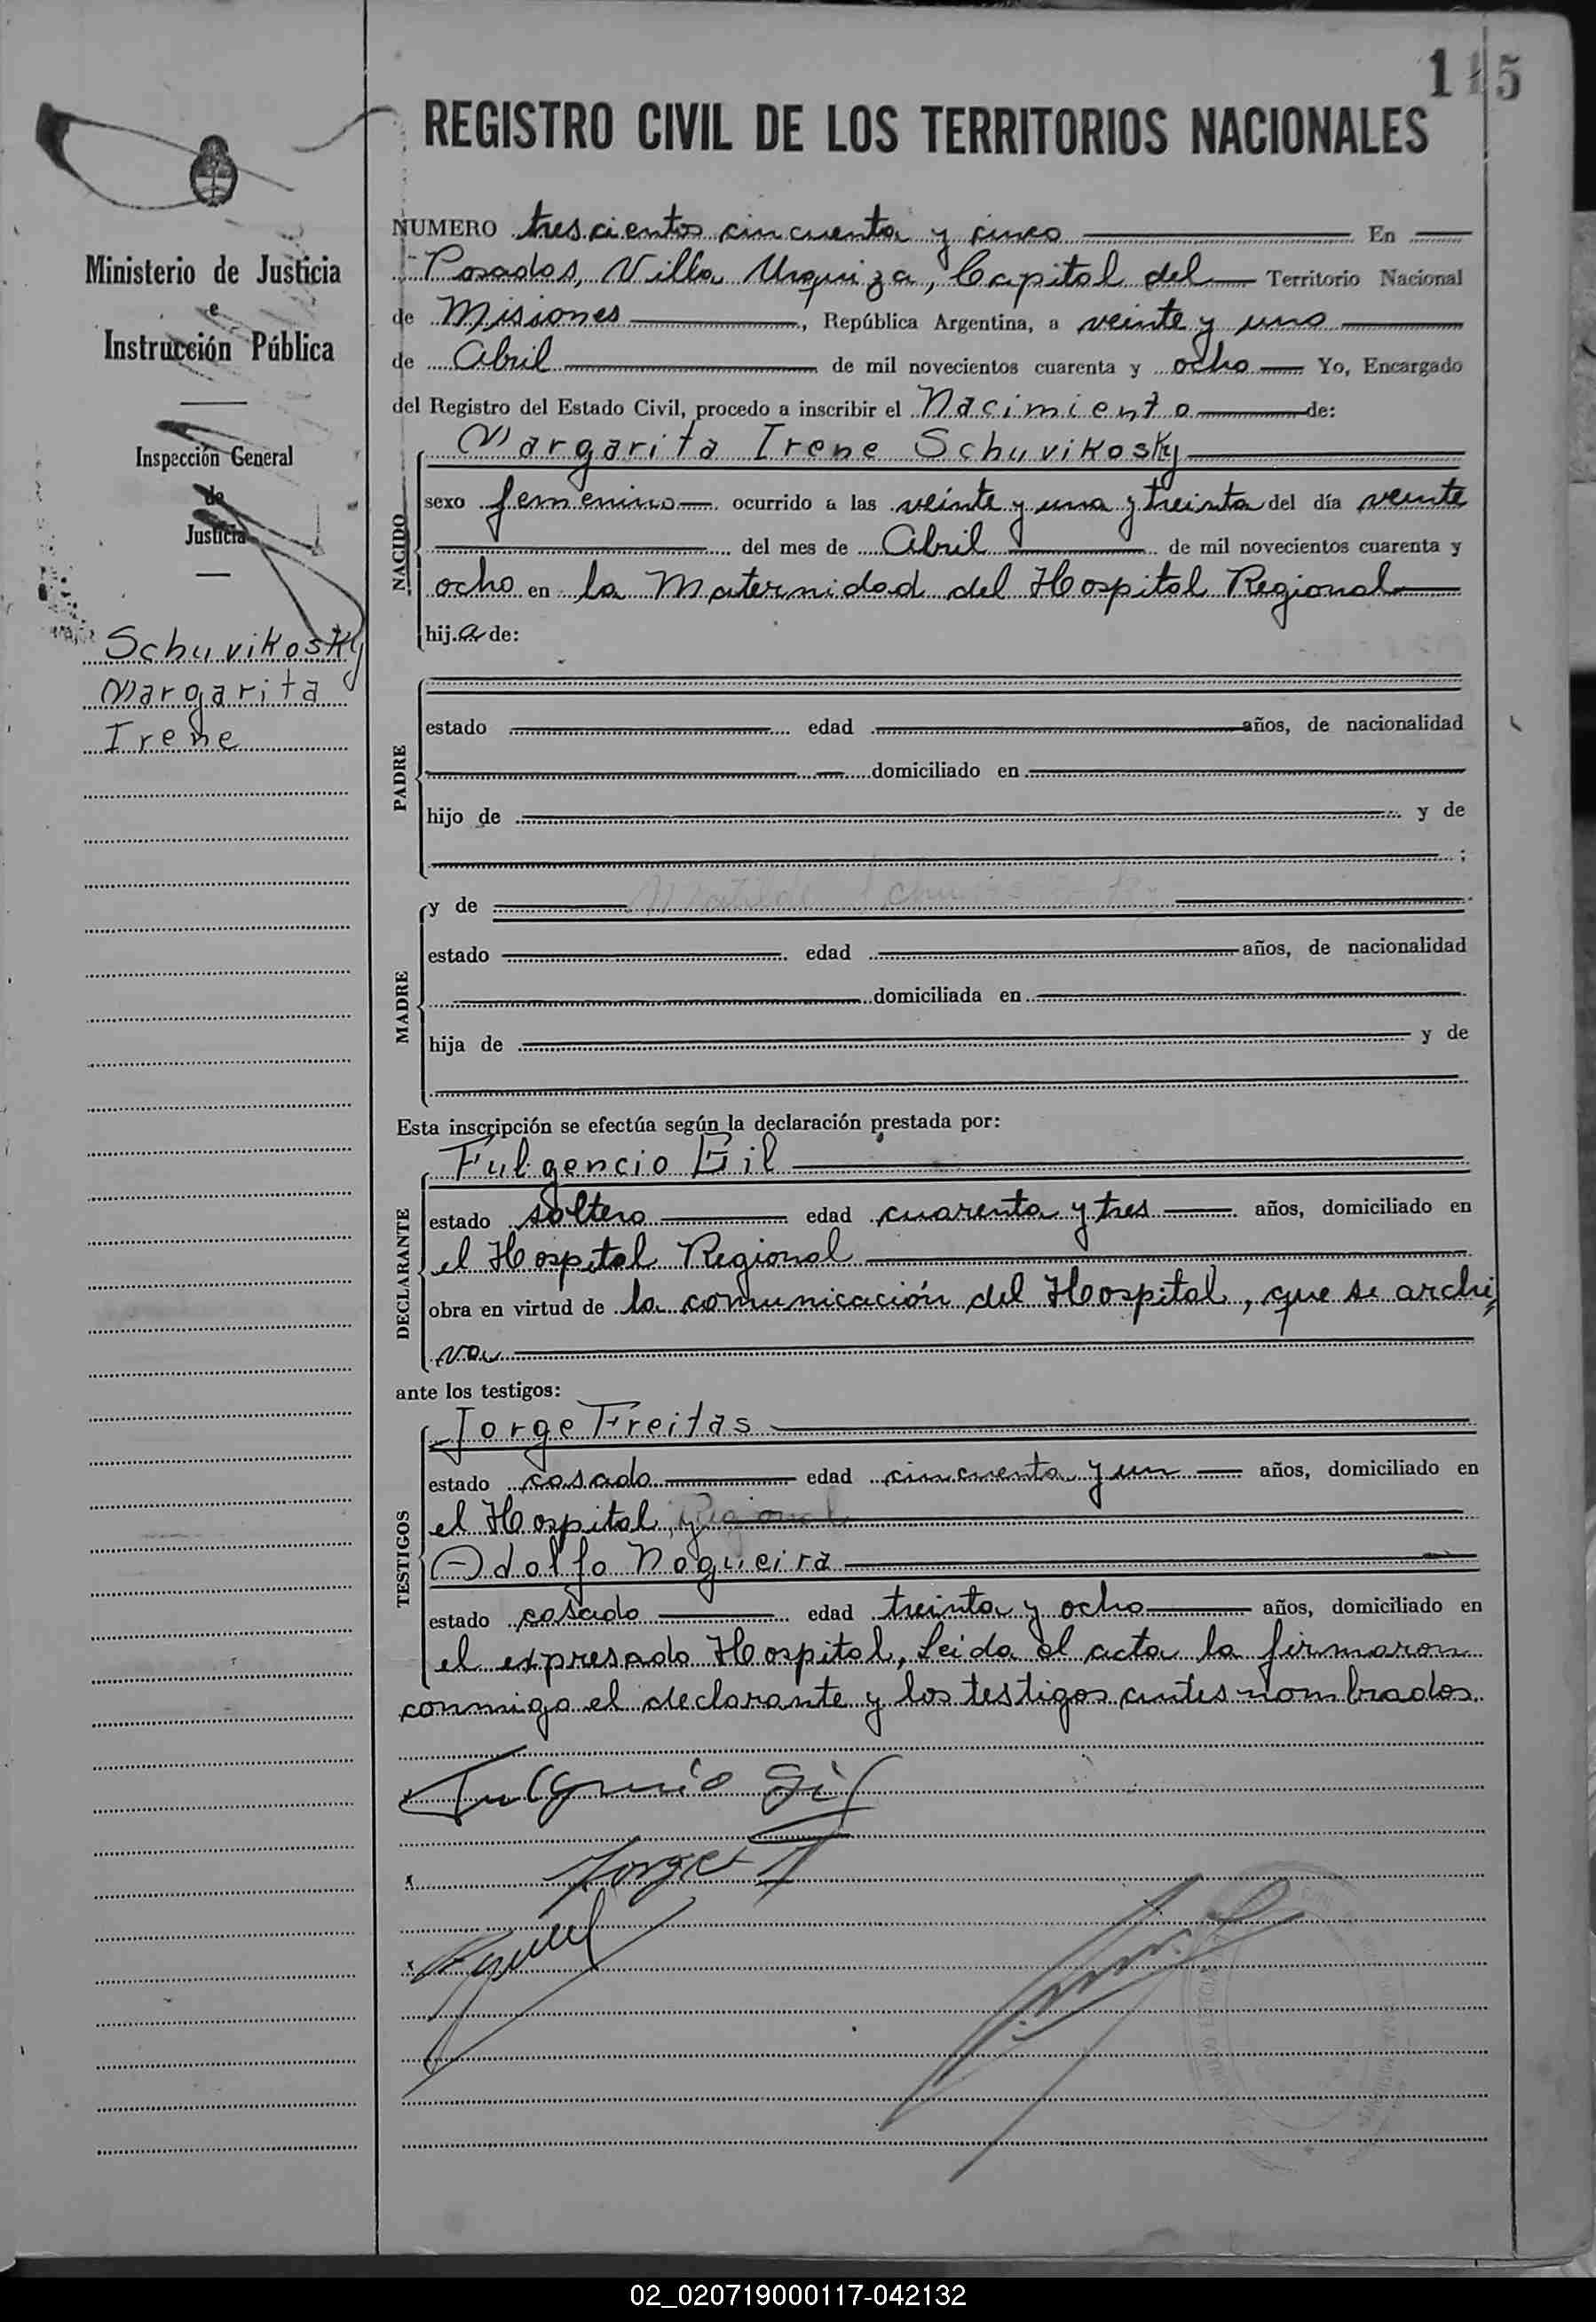 115
REGISTRO CIVIL DE LOS TERRITORIOS NACIONALES
Ministerio de Justicia
e
Instrucción Pública
Inspección General
de
Justicia
Schuvikosky
Margarita
Irene
NUMERO trescientos cincuenta y cinco En
Posadas, Villa Urquiza, Capital del Territorio Nacional
de Misiones, República Argentina, a veinte y uno
de Abril de mil novecientos cuarenta y ocho Yo, Encargado
del Registro del Estado Civil, procedo a inscribir el Nacimiento de:
Margarita Irene Schuvikosky
NACIDO
sexo femenino ocurrido a las veinte y una y treinta del día veinte
del mes de Abril de mil novecientos cuarenta y
ocho en la Maternidad del Hospital Regional
hija de:
PADRE
estado edad años, de nacionalidad
domiciliado en
hijo de y de
;
MADRE
y de Matilde
estado edad años, de nacionalidad
domiciliada en
hija de y de
Esta inscripción se efectúa según la declaración prestada por:
DECLARANTE
Fulgencio Gil
estado soltero edad cuarenta y tres años, domiciliado en
el Hospital Regional
obra en virtud de la comunicación del Hospital, que se archi
va
ante los testigos:
TESTIGOS
Jorge Freitas
estado casado edad cincuenta y un años, domiciliado en
el Hospital, y Regional
Adolfo Nogueira
estado casado edad treinta y ocho años, domiciliado en
el expresado Hospital, Leida el acta la firmaron
conmigo el declarante y los testigos antes nombrados.
Fulgencio Gil
Jorge F
02_020719000117-042132